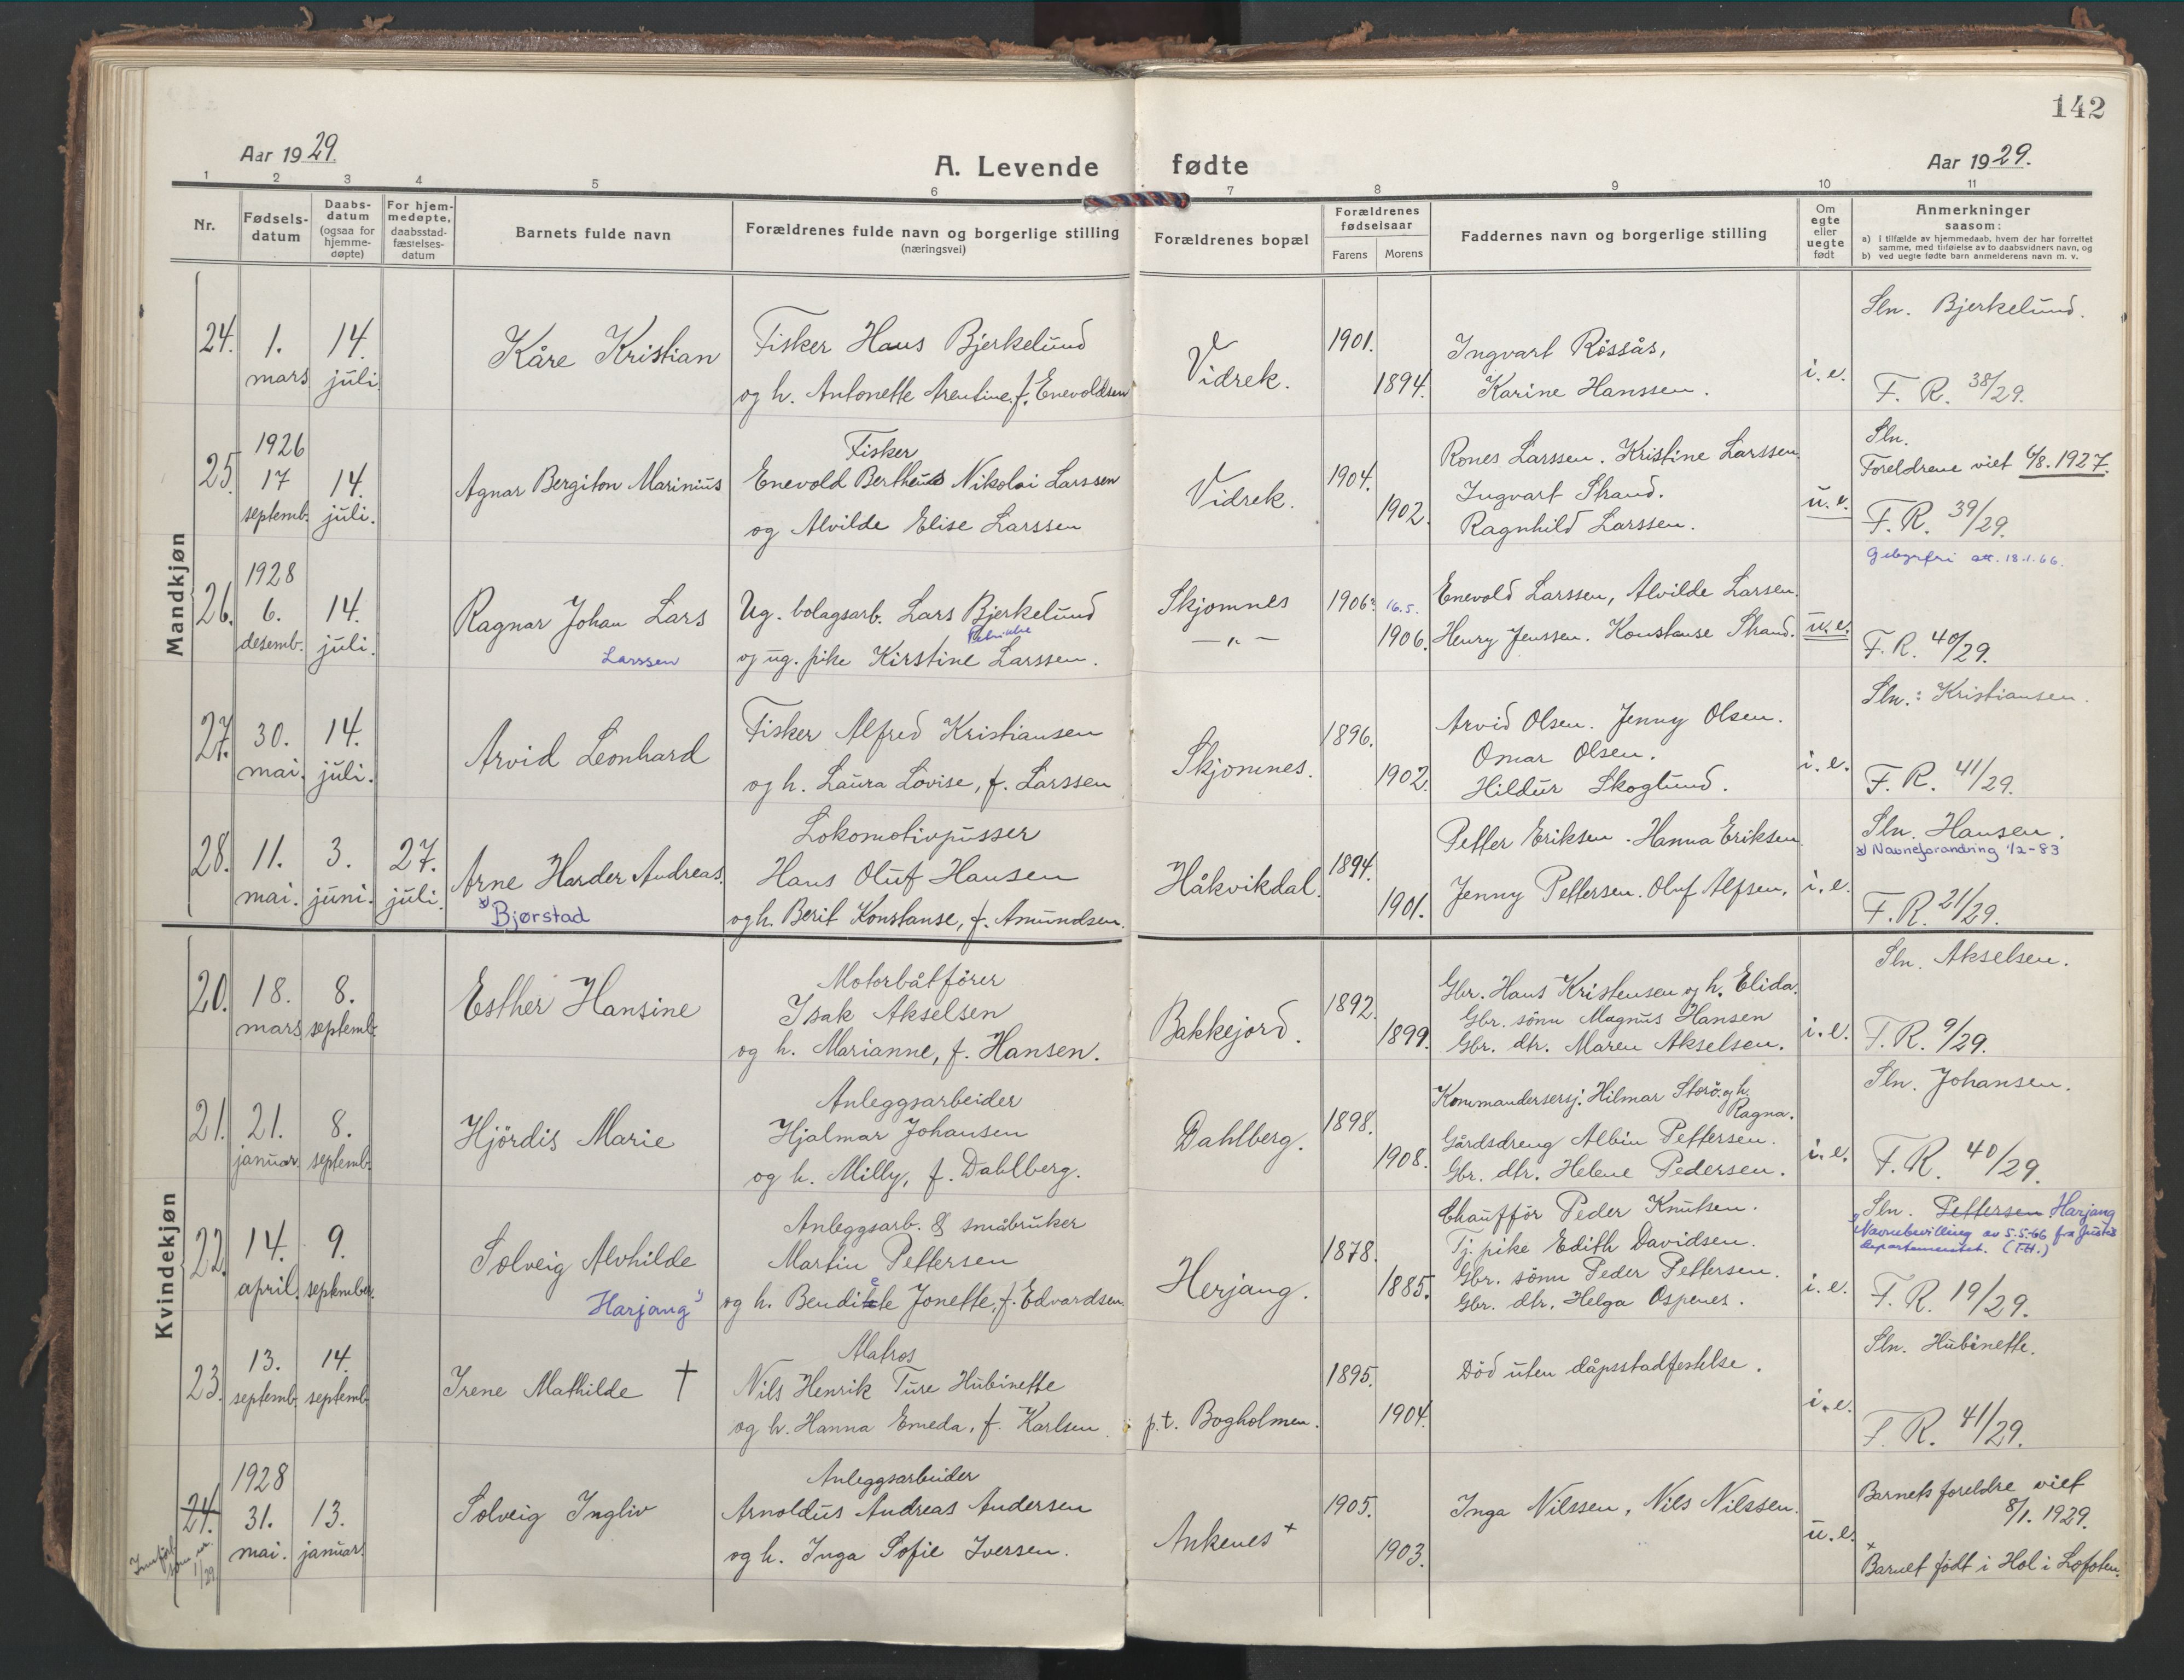 142
Aar 1929.
A. Levende fødte
Aar 1929.
1 2 3 4 5 6 7 8 9 10 11
Nr.
Fødsels-
datum
Daabs-
datum
(ogsaa for
hjemme-
døpte)
For hjem-
medøpte,
daabsstad-
fæstelses-
datum
Barnets fulde navn
Forældrenes fulde navn og borgerlige stilling
(næringsvei)
Forældrenes bopæl
Forældrenes
fødselsaar
Farens Morens
Faddernes navn og borgerlige stilling
Om
egte
eller
uegte
født
Anmerkninger
saasom:
a) I tilfælde av hjemmedaab, hvem der har forrettet
samme, med tilføielse av to daabsvidners navn, og
b) ved uegte fødte barn anmelderens navn m. v.
Mandkjøn
24.
1.
mars
14.
juli.
Kåre Kristian
Fisker Hans Bjerkelund
og h. Antonette Arentine, f. Enevoldsen
Vidrek.
1901.
1894.
Ingvart Rössås,
Karine Hanssen.
i. e.
Sln. Bjerkelund.
F. R. 38/29.
25.
1926
17
septemb.
14.
juli.
Agnar Bergiton Marinius
Fisker
Enevold Bertheus Nikolai Larssen
og Alvilde Elise Larssen
Vidrek.
1904.
1902.
Rones Larssen. Kristine Larssen.
Ingvart Strand.
Ragnhild Larssen.
u. e.
Sln.
Foreldrene viet 6/8. 1927.
F. R. 39/29.
Gebyrfri att. 18.1.66.
26.
1928
6.
desemb.
14.
juli.
Ragnar Johan Lars
Larssen
Ug. bolagsarb. Lars Bjerkelund
og ug. pike Kirstine Larssen.
Skjomnes
— " —
1906.
16.5.
1906.
Enevold Larssen, Alvilde Larsen.
Henry Jenssen. Konstanse Strand.
u. e.
F. R. 40/29.
27.
30.
mai.
14.
juli.
Arvid Leonhard
Fisker Alfred Kristiansen
og h. Laura Lovise, f. Larssen
Skjomnes.
1896.
1902.
Arvid Olsen. Jenny Olsen.
Omar Olsen.
Hildur Skoglund.
i. e.
Sln.: Kristiansen.
F. R. 41/29.
28.
11.
mai.
3.
juni.
27.
juli.
Arne Harder Andreas.
x) Bjørstad
Lokomotivpusser
Hans Oluf Hansen
og h. Berit Konstanse, f. Amundsen.
Håkvikdal.
1894.
1901.
Petter Eriksen. Hanna Eriksen
Jenny Pettersen. Oluf Alfsen.
i. e.
Sln. Hansen.
x) Navneforandring 1/2-83
F. R. 21/29.
Kvindekjøn
20.
18.
mars
8.
septemb.
Esther Hansine
Motorbåtförer
Isak Akselsen
og h. Marianne, f. Hansen.
Bakkejord.
1892.
1899.
Gbr. Hans Kristensen og h. Elida.
Gbr. sönn Magnus Hansen
Gbr. dtr. Maren Akselsen.
i. e.
Sln. Akselsen.
F. R. 9/29.
21.
21.
januar.
8.
septemb.
Hjördis Marie
Anleggsarbeider
Hjalmar Johansen
og h. Milly, f. Dahlberg.
Dahlberg.
1898.
1908.
Kommandersersj. Hilmar Storö. og h.
Ragna.
Gårdsdreng Albin Pettersen.
Gbr. dtr. Helene Pedersen.
i. e.
Sln. Johansen.
F. R. 40/29.
22.
14.
april.
9.
september.
Solveig Alvhilde
Harjang 1)
Anleggsarb. & småbruker
Martin Pettersen
og h. Bendikte Jonette, f. Edvardsen.
Herjang.
1878.
1885.
Chaufför Peder Knutsen.
Tj. pike Edith Davidsen.
Gbr. sönn Peder Pettersen.
Gbr. dtr. Helga Ospenes.
i. e.
Sln. Pettersen Harjang
1) Navnebevilling av 5.5.66 fra Justis
departementet. (T.H.)
F. R. 19/29.
23.
13.
septemb.
14.
septemb.
Irene Mathilde †
Matros
Nils Henrik Ture Hubinette
og h. Hanna Emeda, f. Karlsen.
p.t. Bogholmen.
1895.
1904.
Död uten dåpsstadfestelse.
i. e.
Sln. Hubinette.
F. R. 41/29.
24.
Innført
som nr.
1/29
1928
31.
mai.
13.
januar.
Solveig Ingliv
Anleggsarbeider
Arnoldus Andreas Andersen
og h. Inga Sofie Iversen.
Ankenes +
1905.
1903.
Inga Nilssen, Nils Nilssen.
u. e.
Barnets foreldre viet
8/1. 1929.
+ Barnet födt i Hol i Lofoten.